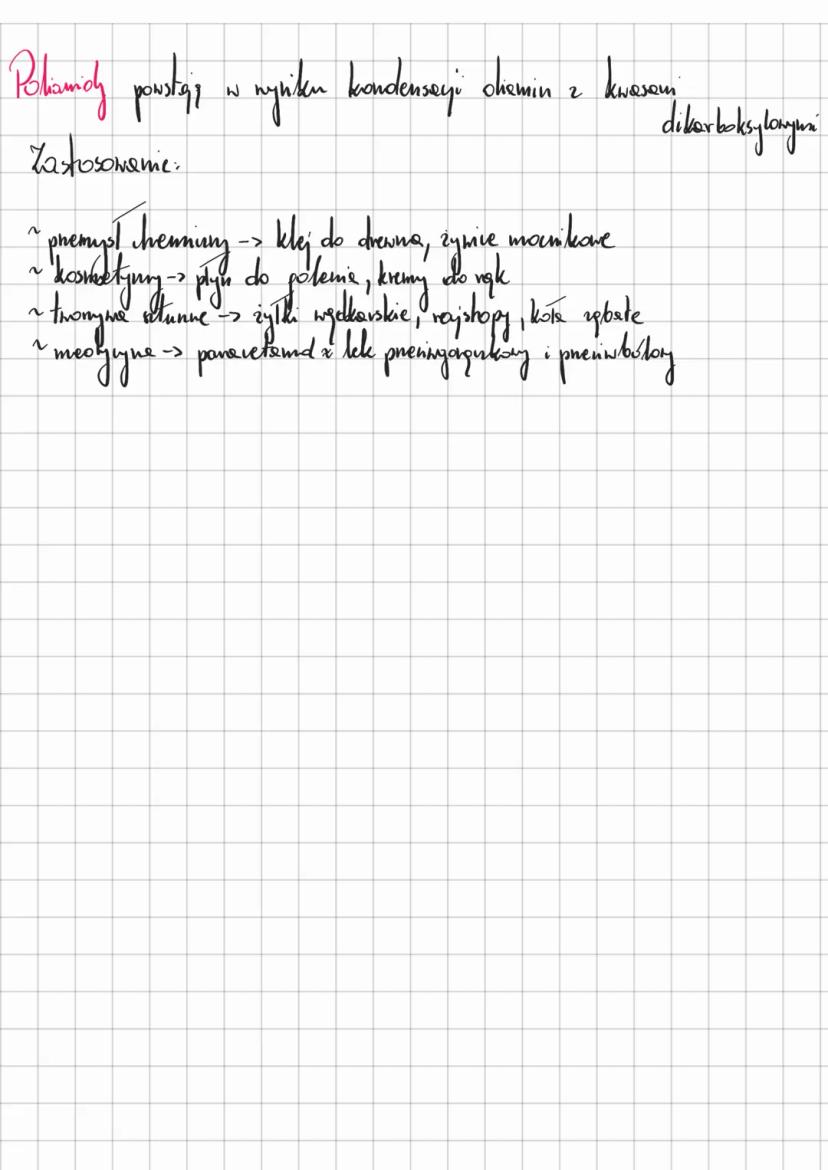 Poliamidy powstają w wyniku kondensacji diamin z kwasami
dikarboksylowymi
Zastosowanie:
~ przemysł chemiczny -> klej do drewna, żywice mocznikowe
~ kosmetyczny -> płyn do golenia, kremy do rąk
~ tworzywa sztuczne -> żyłki wędkarskie, rajstopy, koła zębate
~ medycyna -> paracetamol lek przeciwgorączkowy i przeciwbólowy